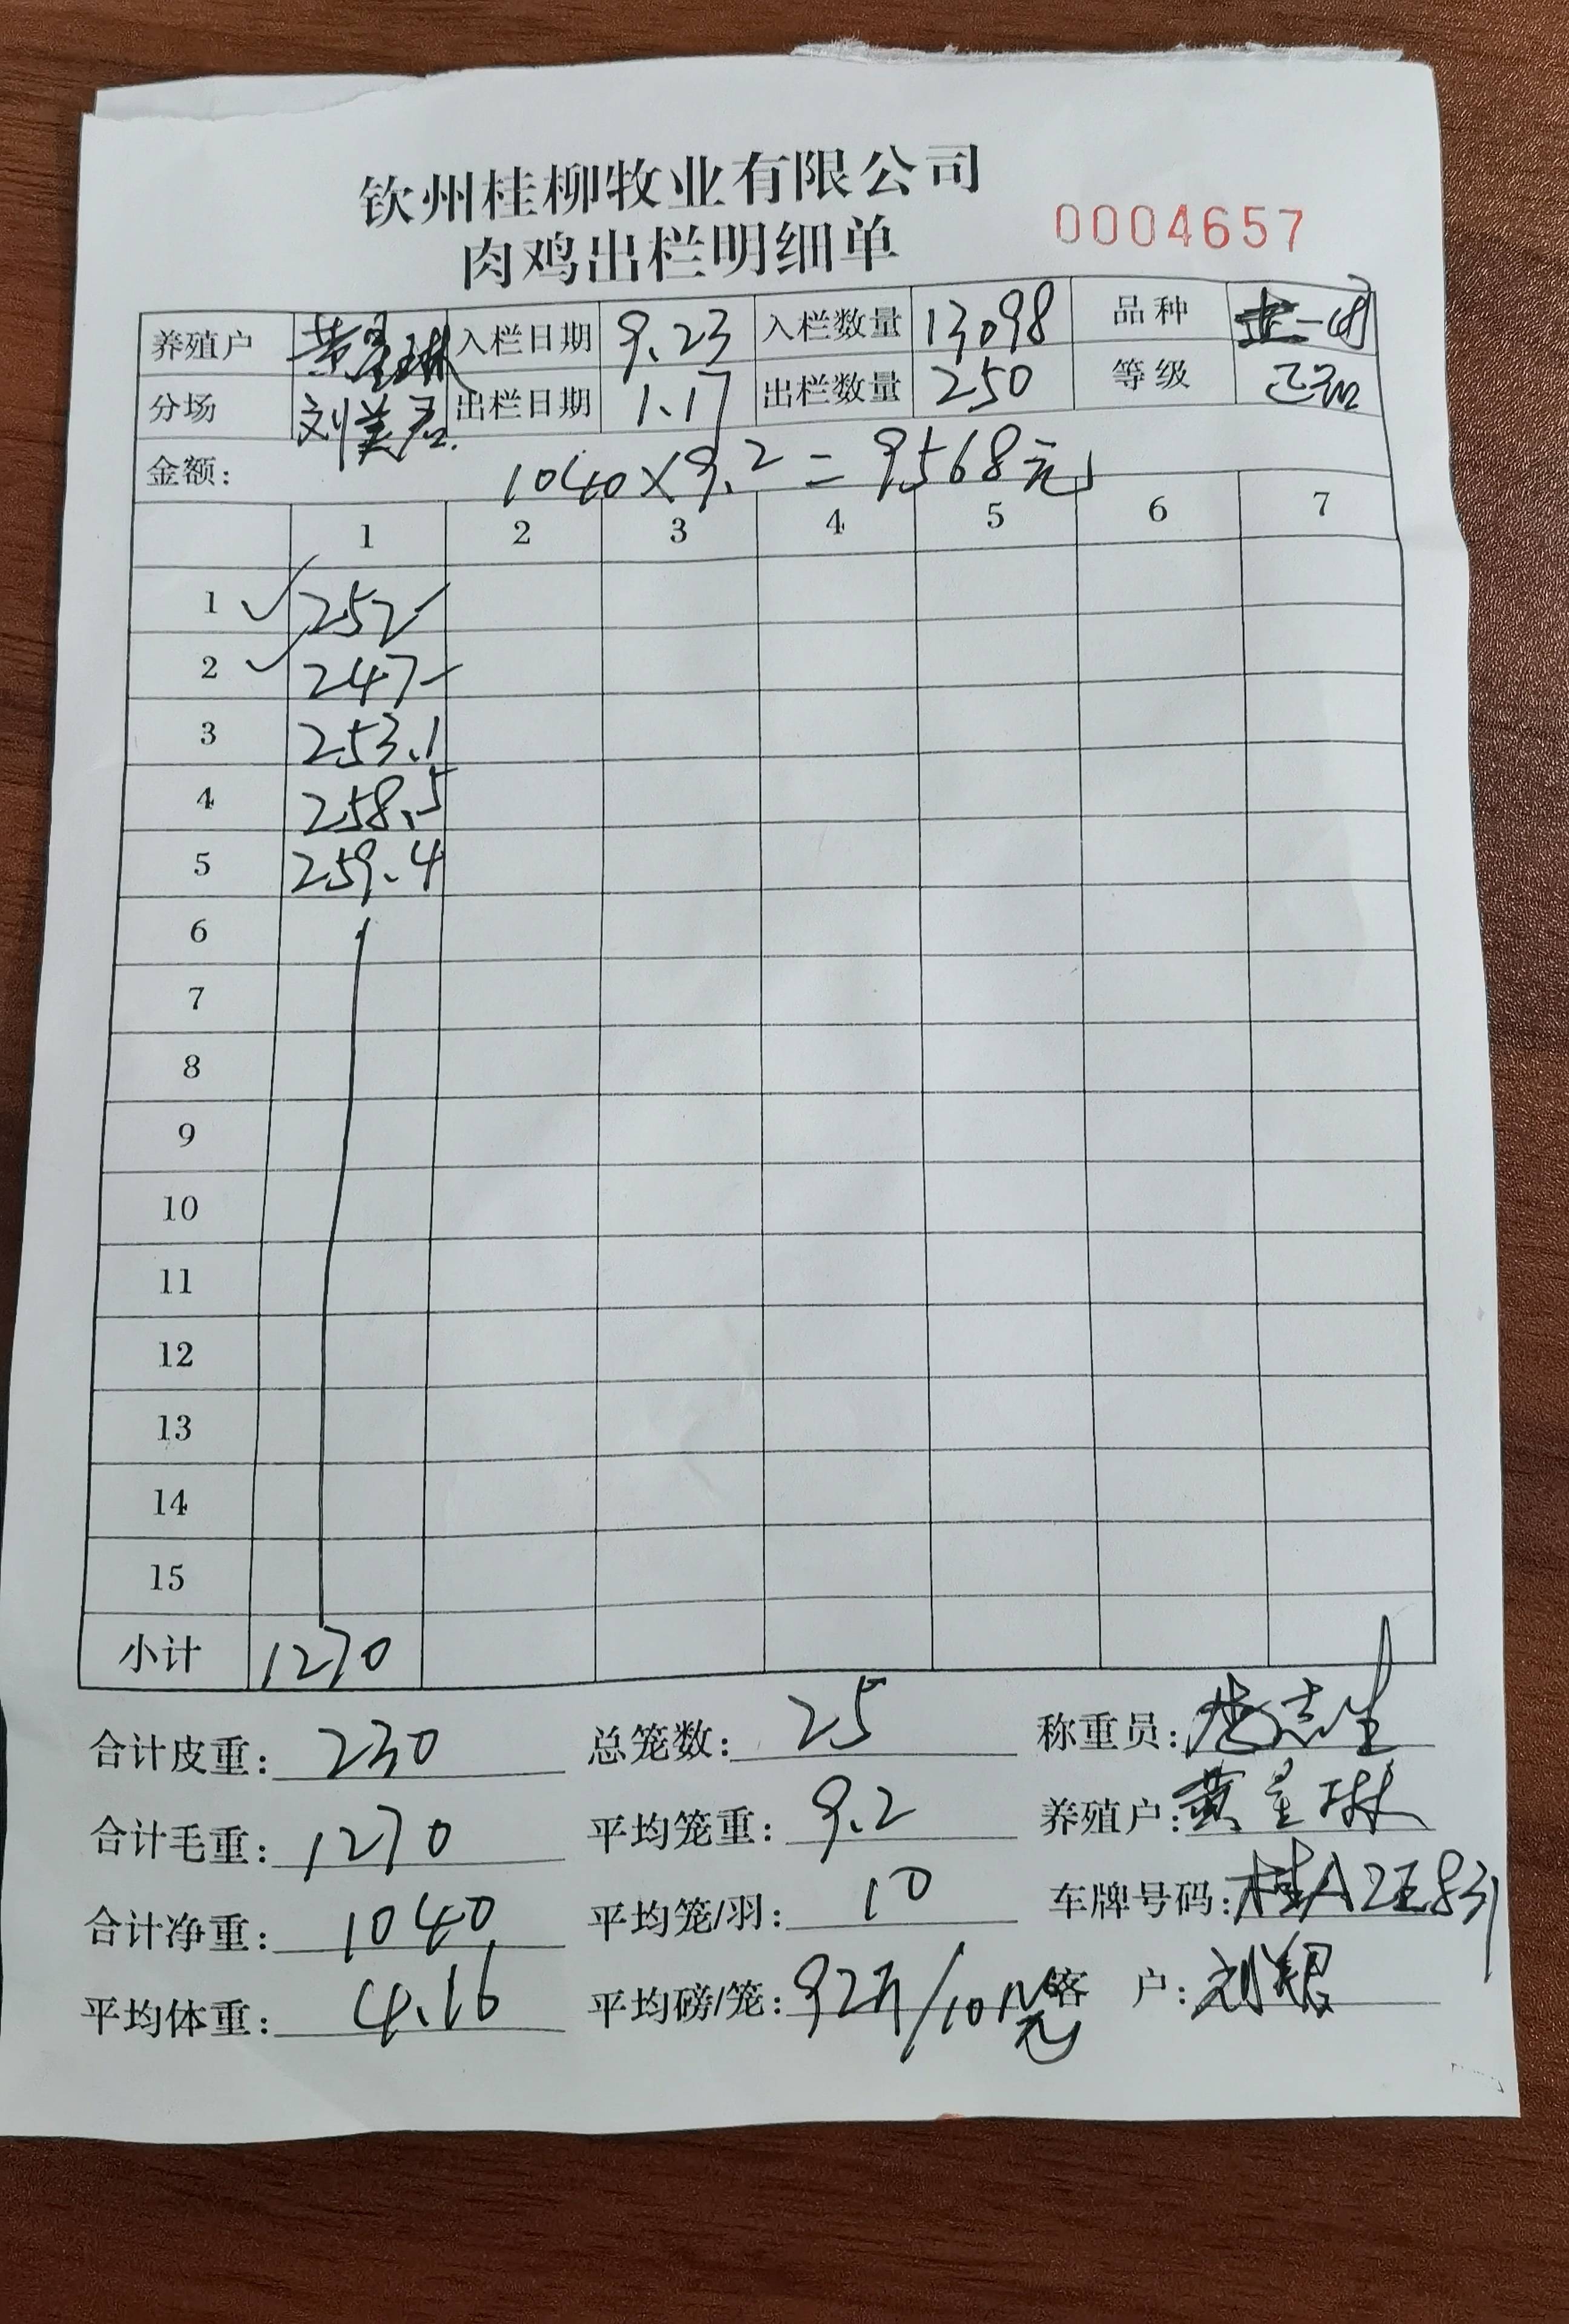 钦州桂柳牧业有限公司
肉鸡出栏明细单 0004657
养殖户 黄星琳 入栏日期 9.23 入栏数量 13098 品种
分场 刘美君 出栏日期 1.17 出栏数量 250 等级 正品
金额: 1040×9.2=9568元
1 2 3 4 5 6 7
1 252
2 247
3 253.1
4 258.5
5 259.4
6
7
8
9
10
11
12
13
14
15
小计 1270
合计皮重: 230 总笼数: 25 称重员: 志生
合计毛重: 1270 平均笼重: 9.2 养殖户: 黄星琳
合计净重: 1040 平均笼/羽: 10 车牌号码: 桂A2Z831
平均体重: 4.16 平均磅/笼: 客 户: